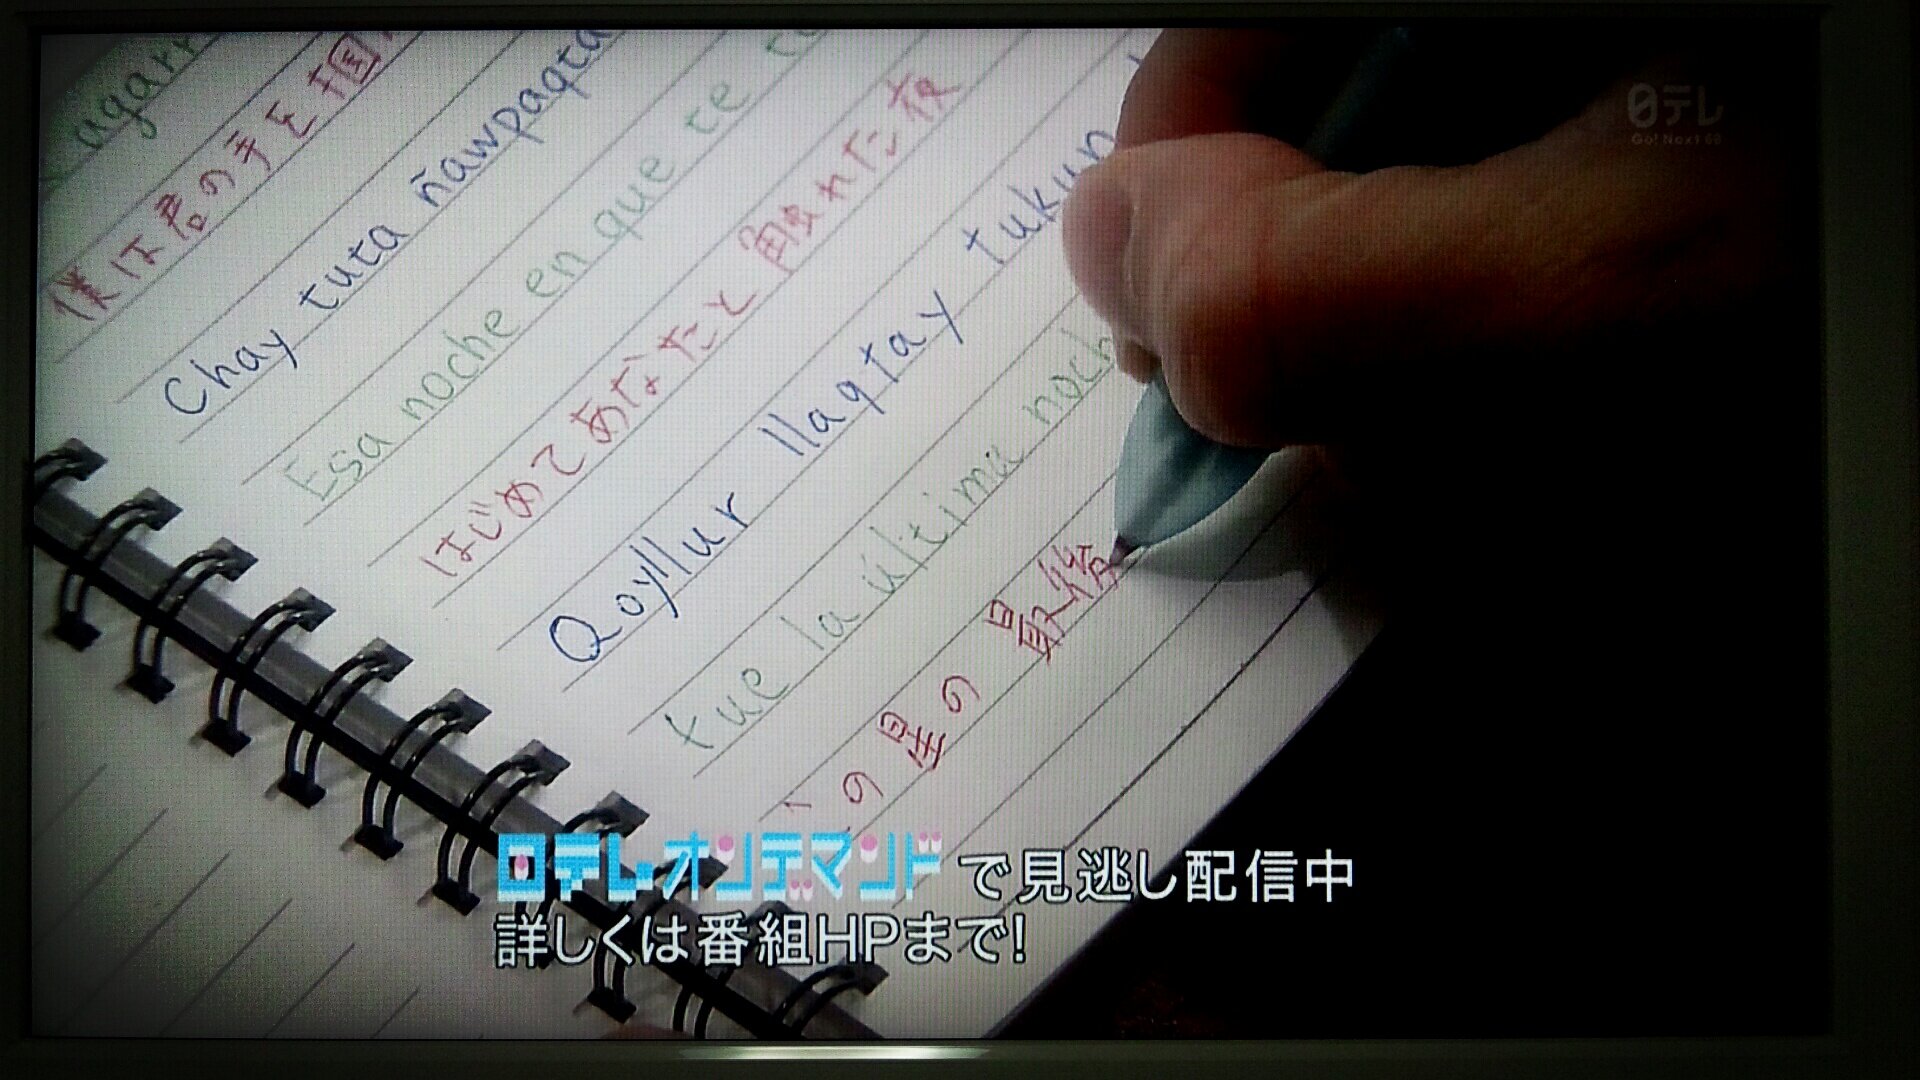 agarr
僕は君の手を掴
Chay tuta ñawpaqta
Esa noche en que te to
はじめてあなたと触れた夜
Qoyllur llaqtay tukun
fue la última noch
の星の最終
日テレ
Go! Next 60
日テレオンデマンドで見逃し配信中
詳しくは番組HPまで!